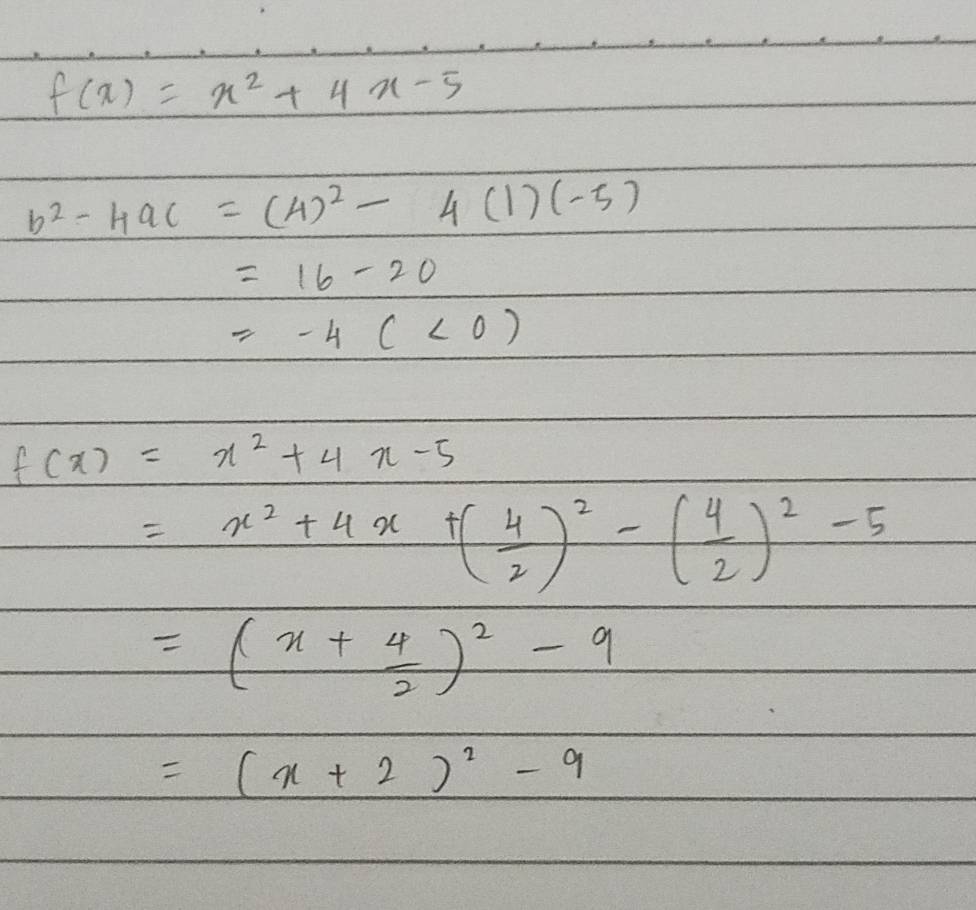 f(x) = x² + 4x - 5
b² - 4ac = (4)² - 4(1)(-5)
= 16 - 20
= -4 (< 0)
f(x) = x² + 4x - 5
= x² + 4x + (4/2)² - (4/2)² - 5
= (x + 4/2)² - 9
= (x + 2)² - 9